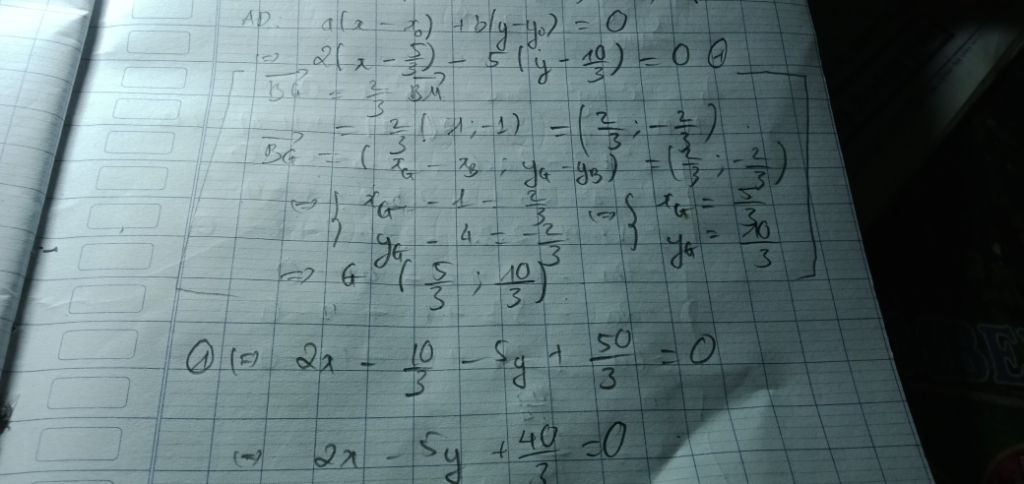 AD: a(x - x₀) + b(y - y₀) = 0
⇒ 2(x - 5/3) - 5(y - 10/3) = 0 ①
BG = 2/3 BM
= 2/3 (1; -1) = (2/3; -2/3)
BG = (x_G - x_B; y_G - y_B) = (2/3; -2/3)
⇒ { x_G - 1 = 2/3 ⇔ { x_G = 5/3
y_G - 4 = -2/3 y_G = 10/3
⇒ G (5/3; 10/3)
① ⇔ 2x - 10/3 - 5y + 50/3 = 0
⇔ 2x - 5y + 40/3 = 0